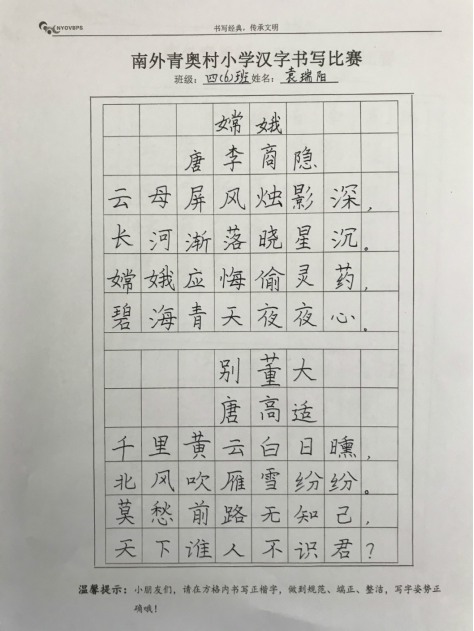 NYOVBPS
书写经典，传承文明
南外青奥村小学汉字书写比赛
班级：四(6)班 姓名：袁瑞阳
嫦娥
唐李商隐
云母屏风烛影深，
长河渐落晓星沉。
嫦娥应悔偷灵药，
碧海青天夜夜心。
别董大
唐高适
千里黄云白日曛，
北风吹雁雪纷纷。
莫愁前路无知己，
天下谁人不识君？
温馨提示：小朋友们，请在方格内书写正楷字，做到规范、端正、整洁，写字姿势正
确哦！